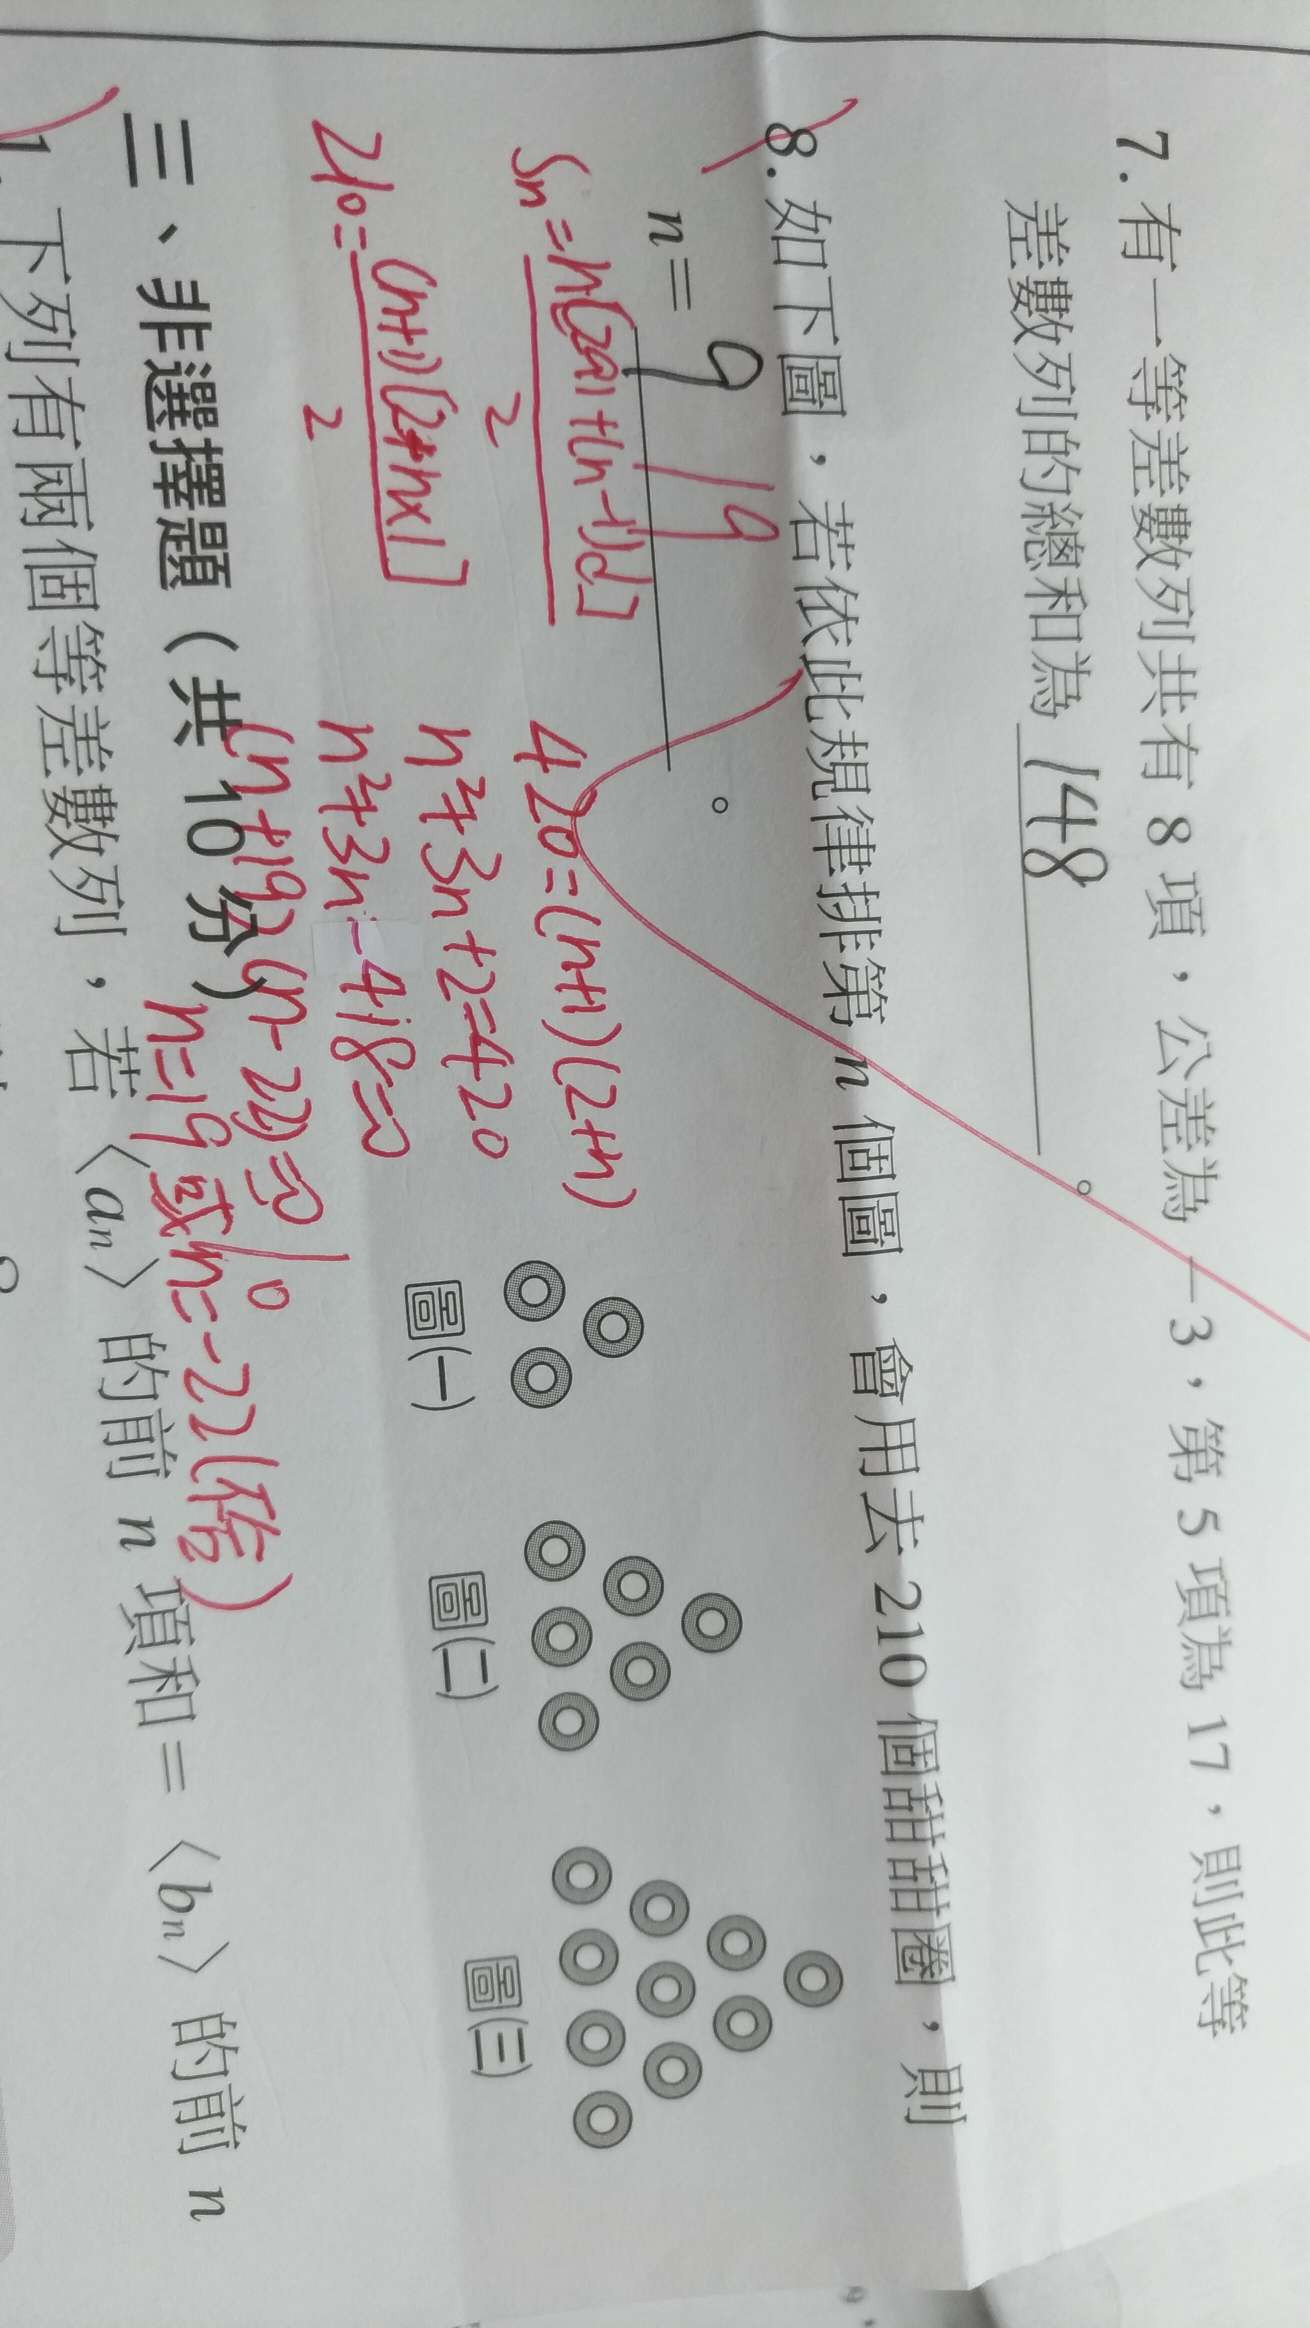 7. 有一等差數列共有 8 項，公差為 -3，第 5 項為 17，則此等
差數列的總和為 148 。
8. 如下圖，若依此規律排第 n 個圖，會用去 210 個甜甜圈，則
n = 9 19 。
Sn = n[2a1+(n-1)d]
2
210 = (n+1)[2+n×1]
2
420 = (n+1)(2+n)
n²+3n+2=420
n²+3n-418=0
(n+19)(n-22)=0
n=19 或 n=-22(不合)
圖(一)
圖(二)
圖(三)
三、非選擇題（共 10 分）
1. 下列有兩個等差數列，若〈an〉的前 n 項和 = 〈bn〉的前 n